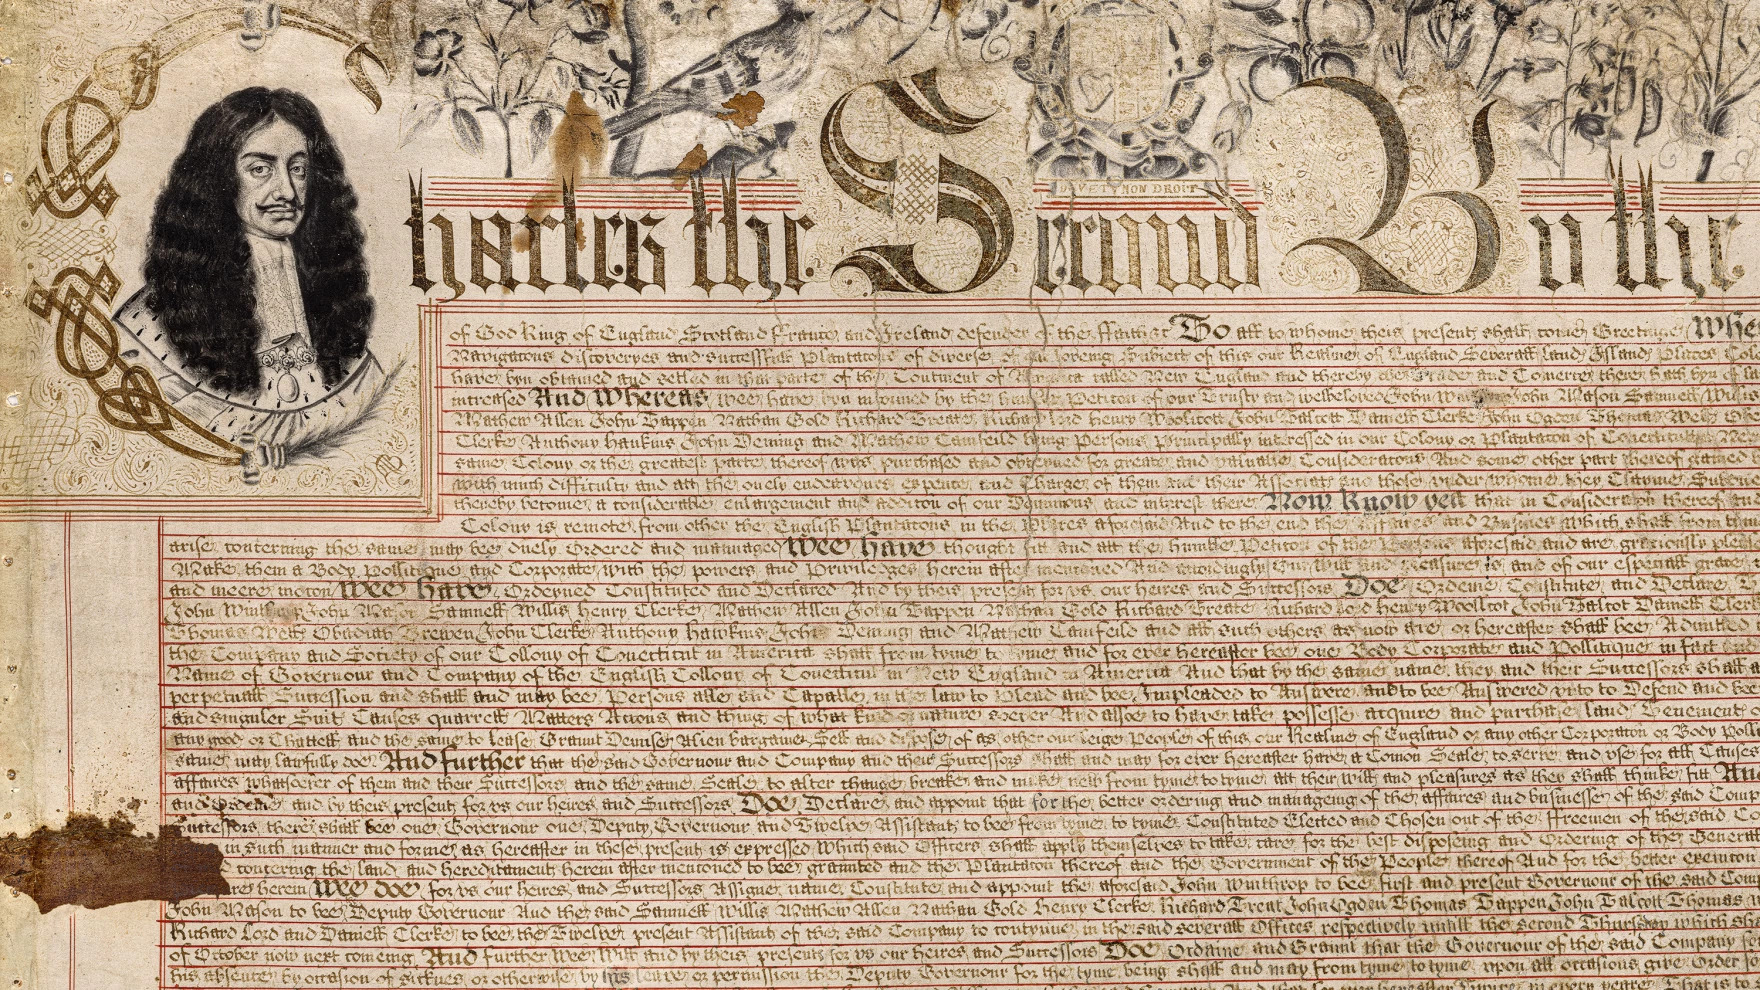 DROIT
harles the Second By the
of God King of England Scotland France and Ireland defender of the Faith &c To all to whome theis present shall come Greetinge Whe
Navigatons discoveryes and successfull Plantatons of diverse of our loveing Subiects of this our Realme of England Severall land Island Places Col
have byn obtained and setled in that parte of the Continent of America called New England and thereby the Trade and Comerce there hath byn of la
increased And Whereas wee have byn informed by the humble Petiton of our Trusty and welbeloved John Winthrop John Mason Samuell Willis
Mathew Allen John Tappen Nathan Gold Richard Treate Richard Lord Henry Woolicott John Talcott Daniell Clerke John Ogden Thomas Wells Ob
Clerke Anthony Haukins John Deming and Mathew Camfeild being Persons Principally interessed in our Colony or Plantaton of Conecticutt in New
same Colony or the greatest parte thereof was purchased and obteyned for greate and valuable Consideratons And some other part thereof gained
with much difficulty and att the onely endeavours expence and Charge of them and their Associats and those vnder whome they Clayme Subdued
thereby become a considerable enlargement and additon of our Dominions and interest there Now Know yea that in Consideraton thereof an
Colony is remote from other the English Plantatons in the Places aforesaid And to the end the Affaires and Busines which shall from tim
arise concerning the same may bee duely Ordered and mannaged Wee have thought fitt and att the humble Petiton of the Persons aforesaid and are graciously plea
Make them a Body Pollitique and Corporate with the powers and Priviledges herein after mentioned And accordingly Our Will and Pleasure is and of our especiall grace
and meere moton Wee have Ordeyned Constituted and Declared And by theis present for vs our heires and Successors Doe Ordeine Constitute and Declare
John Winthrop John Mason Samuell Willis Henry Clerke Mathew Allen John Tappen Nathan Gold Richard Treate Richard Lord Henry Woollcot John Talcot Daniell Cler
Thomas Wells Obadiah Brewen John Clerke Anthony Hawkins John Deming and Mathew Camfeild and all such others as now are or hereafter shall bee Admitted
the Company and Society of our Collony of Conecticut in America shall from tyme to tyme and for ever hereafter bee one Body Corporate and Pollitique in fact and
Name of Governour and Company of the English Collony of Conecticut in New England in America And that by the same name they and their Successors shall a
perpetuall Succession and shall and may bee Persons able and Capable in the law to Plead and bee Impleaded to Answere and to bee Answered vnto to Defend and bee
and singuler Suit Causes quarrell Matters Actons and thing of what kind or nature soever And alsoe to have take possesse acquire and purchase land Tenement o
any good or Chattell and the same to Lease Graunt Demise Alien bargaine Sell and dispose of as other our leige People of this our Realme of England or any other Corporaton or Body Poll
same may lawfully doe And further that the said Governour and Company and their Successors shall and may for ever hereafter have a Comon Seale to serve and vse for all Causes
affaires whatsoever of them and their Successors and the same Seale to alter change breake and make new from tyme to tyme att their will and pleasures as they shall thinke fitt An
and Ordeine and by theis present for vs our heires and Successors Doe Declare and appoint that for the better ordering and manageing of the affaires and businesse of the said Comp
Successors there shall bee one Governour one Deputy Governour and Twelve Assistant to bee from tyme to tyme Constituted Elected and Chosen out of the Freemen of the said Co
in such manner and forme as hereafter in these present is expressed Which said Officers shall apply themselves to take care for the best disposeing and Ordering of the Genera
concerning the land and hereditament herein after mentioned to bee graunted and the Plantaton thereof and the Government of the People thereof And for the better executon
re herein Wee doe for vs our heires and Successors Assigne name Constitute and appoint the aforesaid John Winthrop to bee first and present Governour of the said Comp
John Mason to bee Deputy Governour And the said Samuell Willis Mathew Allen Nathan Gold Henry Clerke Richard Treat John Ogden Thomas Tappen John Talcott Thomas W
Richard Lord and Daniell Clerke to bee the Twelve present Assistant of the said Company to contynue in the said severall Offices respectively untill the second Thursday which sh
of October now next comeing And further Wee Will and by theis present for vs our heires and Successors Doe Ordaine and Graunt that the Governour of the said Company fo
his absence by occasion of sicknes or otherwise by his leave or permission the Deputy Governour for the tyme being shall and may from tyme to tyme vpon all occasions give Order fo